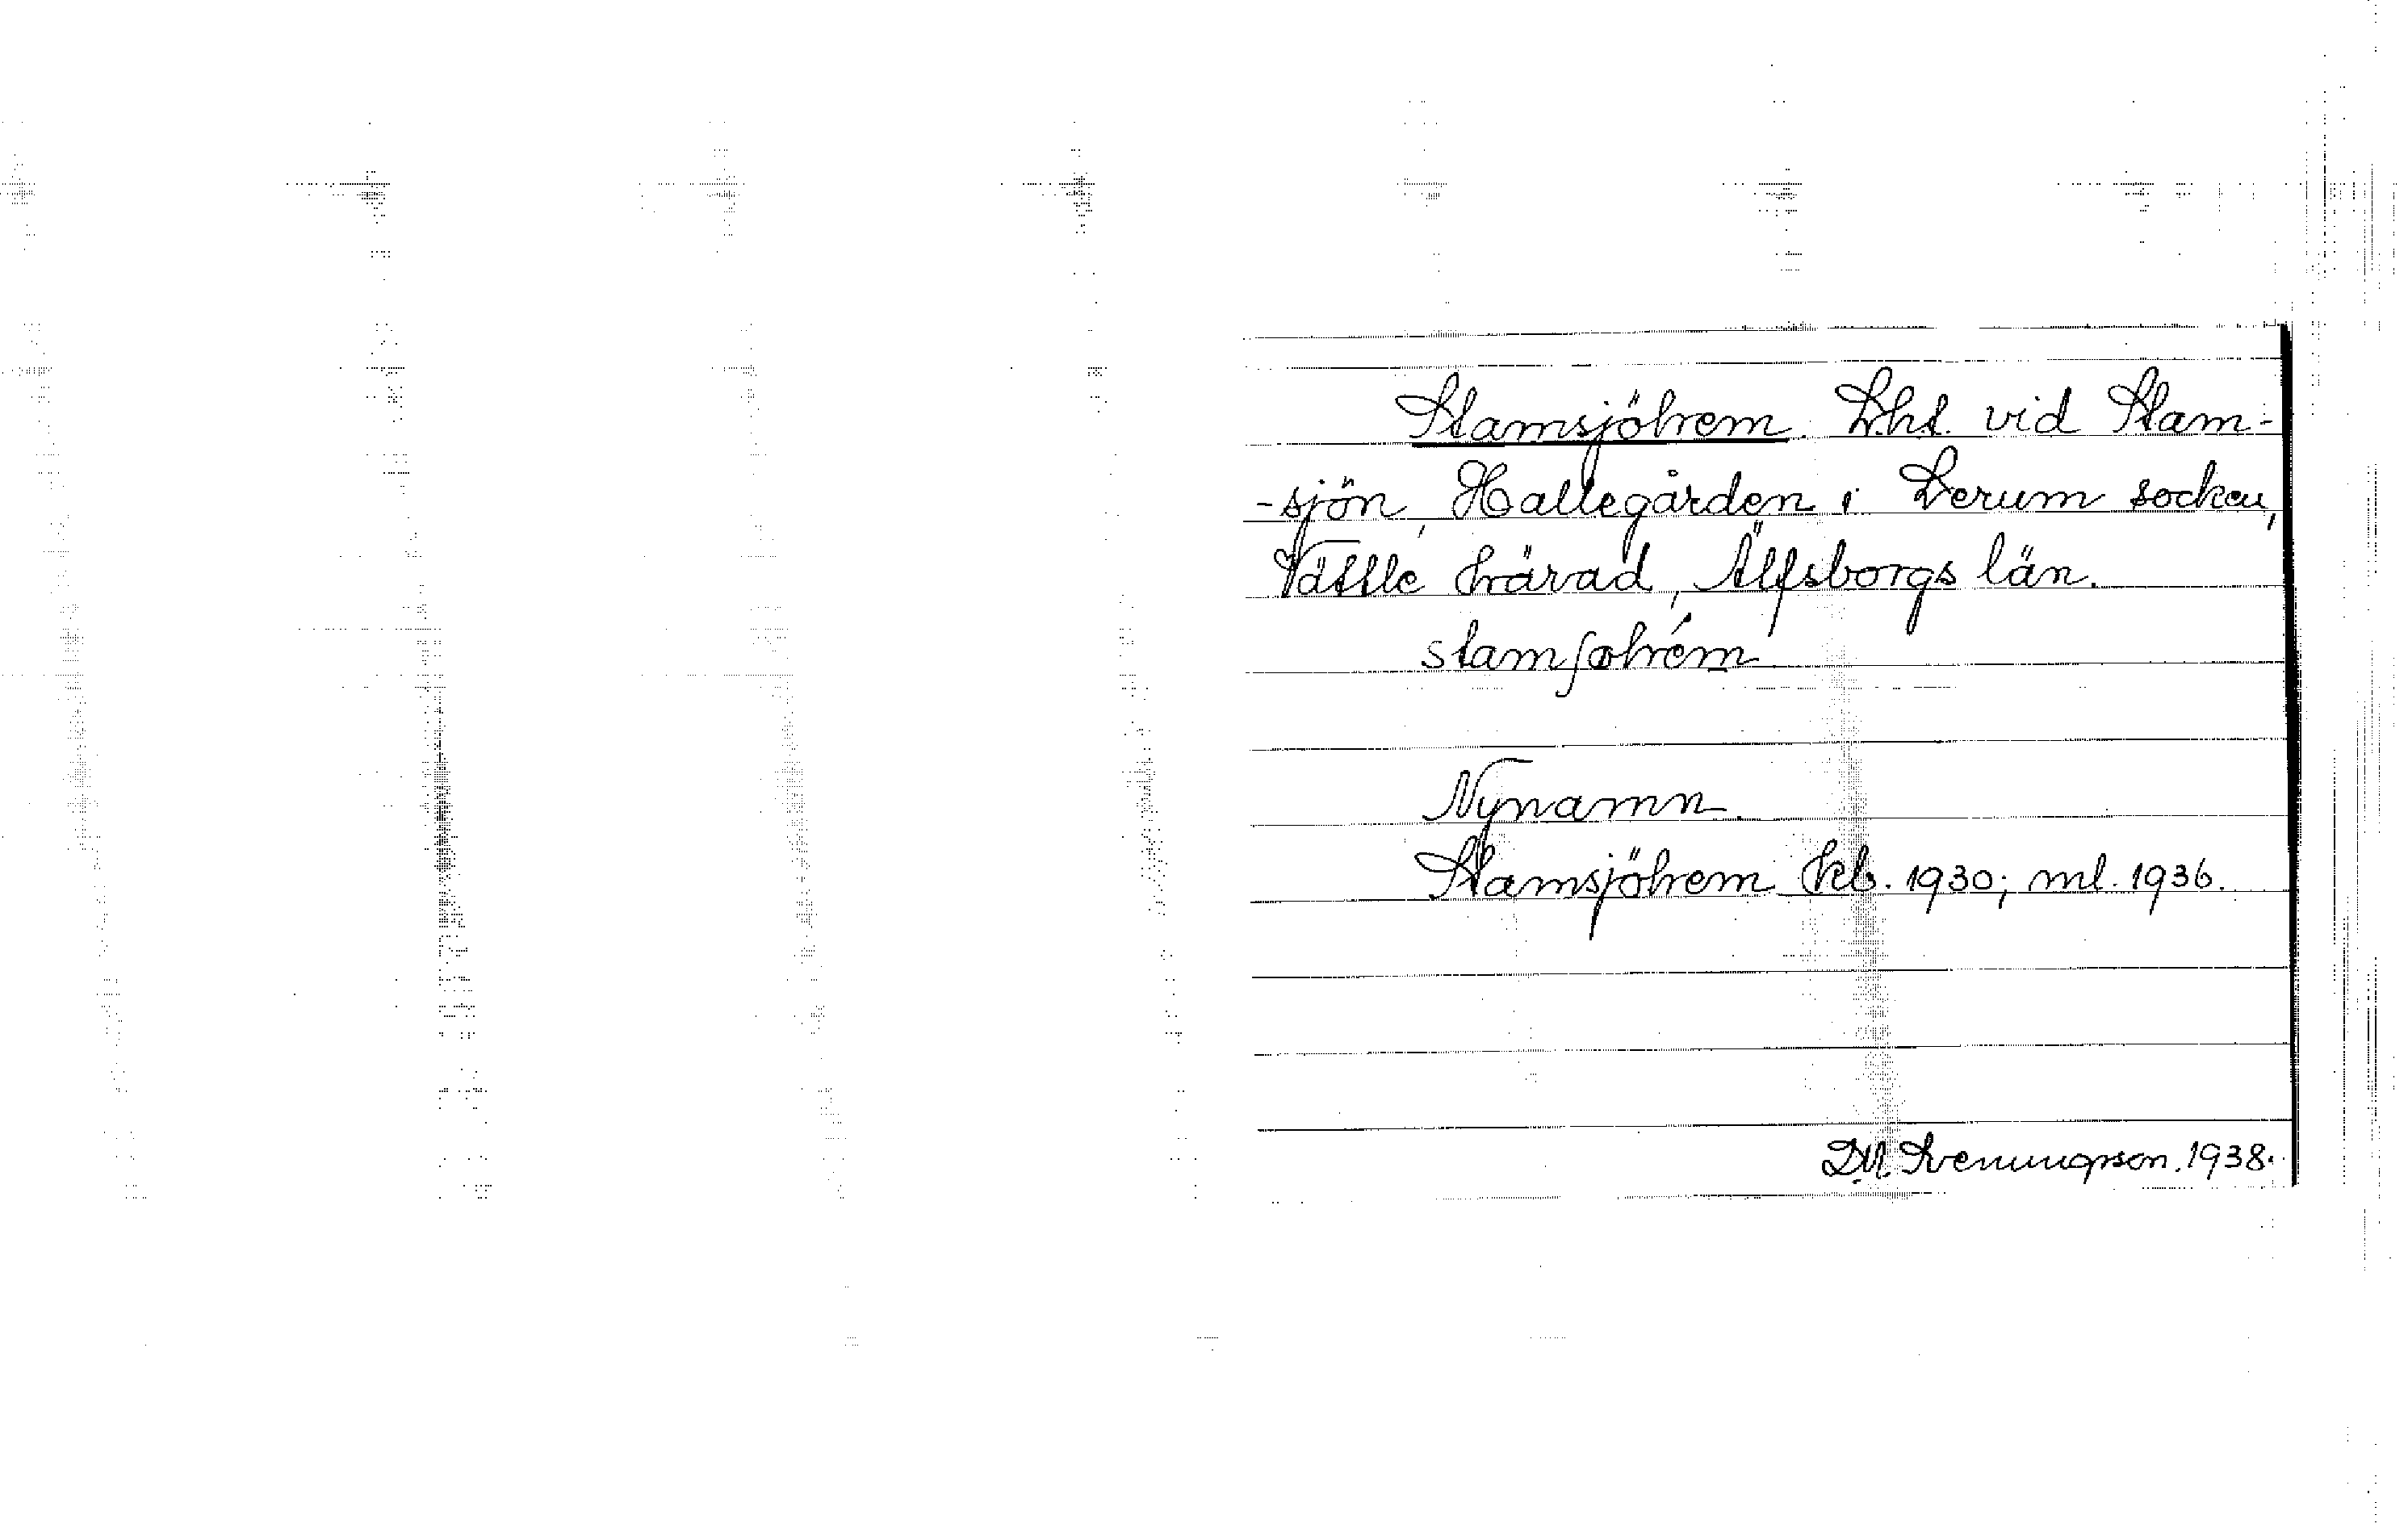 Stamsjöhem. Lht. vid Stam-
-sjön, Hallegården i Lerum socken,
Vättle härad, Älfsborgs län.
stamʃøhém
Nynamn.
Stamsjöhem kb. 1930; ml. 1936.
D.M. Svenungsson. 1938.